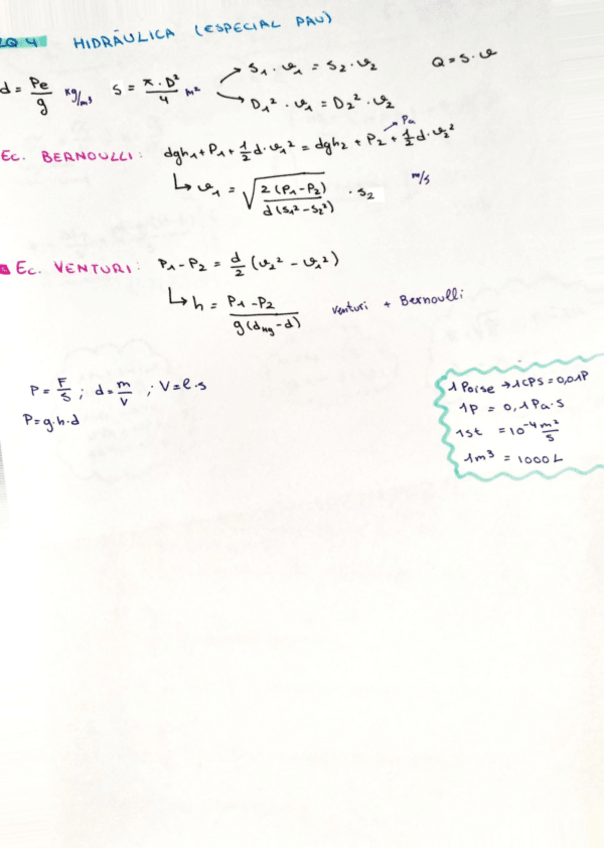 LQ 4 HIDRÁULICA (ESPECIAL PAU)
d = Pe/g kg/m³ S = π·D²/4 m² → S₁·v₁ = S₂·v₂ Q = S·v
→ D₁²·v₁ = D₂²·v₂
Ec. BERNOULLI: dgh₁ + P₁ + ½ d·v₁² = dgh₂ + P₂ + ½ d·v₂² → Pa
↳ v₁ = √(2(P₁-P₂)/d(S₁²-S₂²)) · S₂ m/s
Ec. VENTURI: P₁-P₂ = d/2 (v₂² - v₁²)
↳ h = P₁-P₂/g(dHg-d) Venturi + Bernoulli
P = F/S ; d = m/V ; V = l·s
P = g·h·d
1 Poise → 1 CPS = 0,01P
1P = 0,1 Pa·s
1st = 10⁻⁴ m²/s
1m³ = 1000L